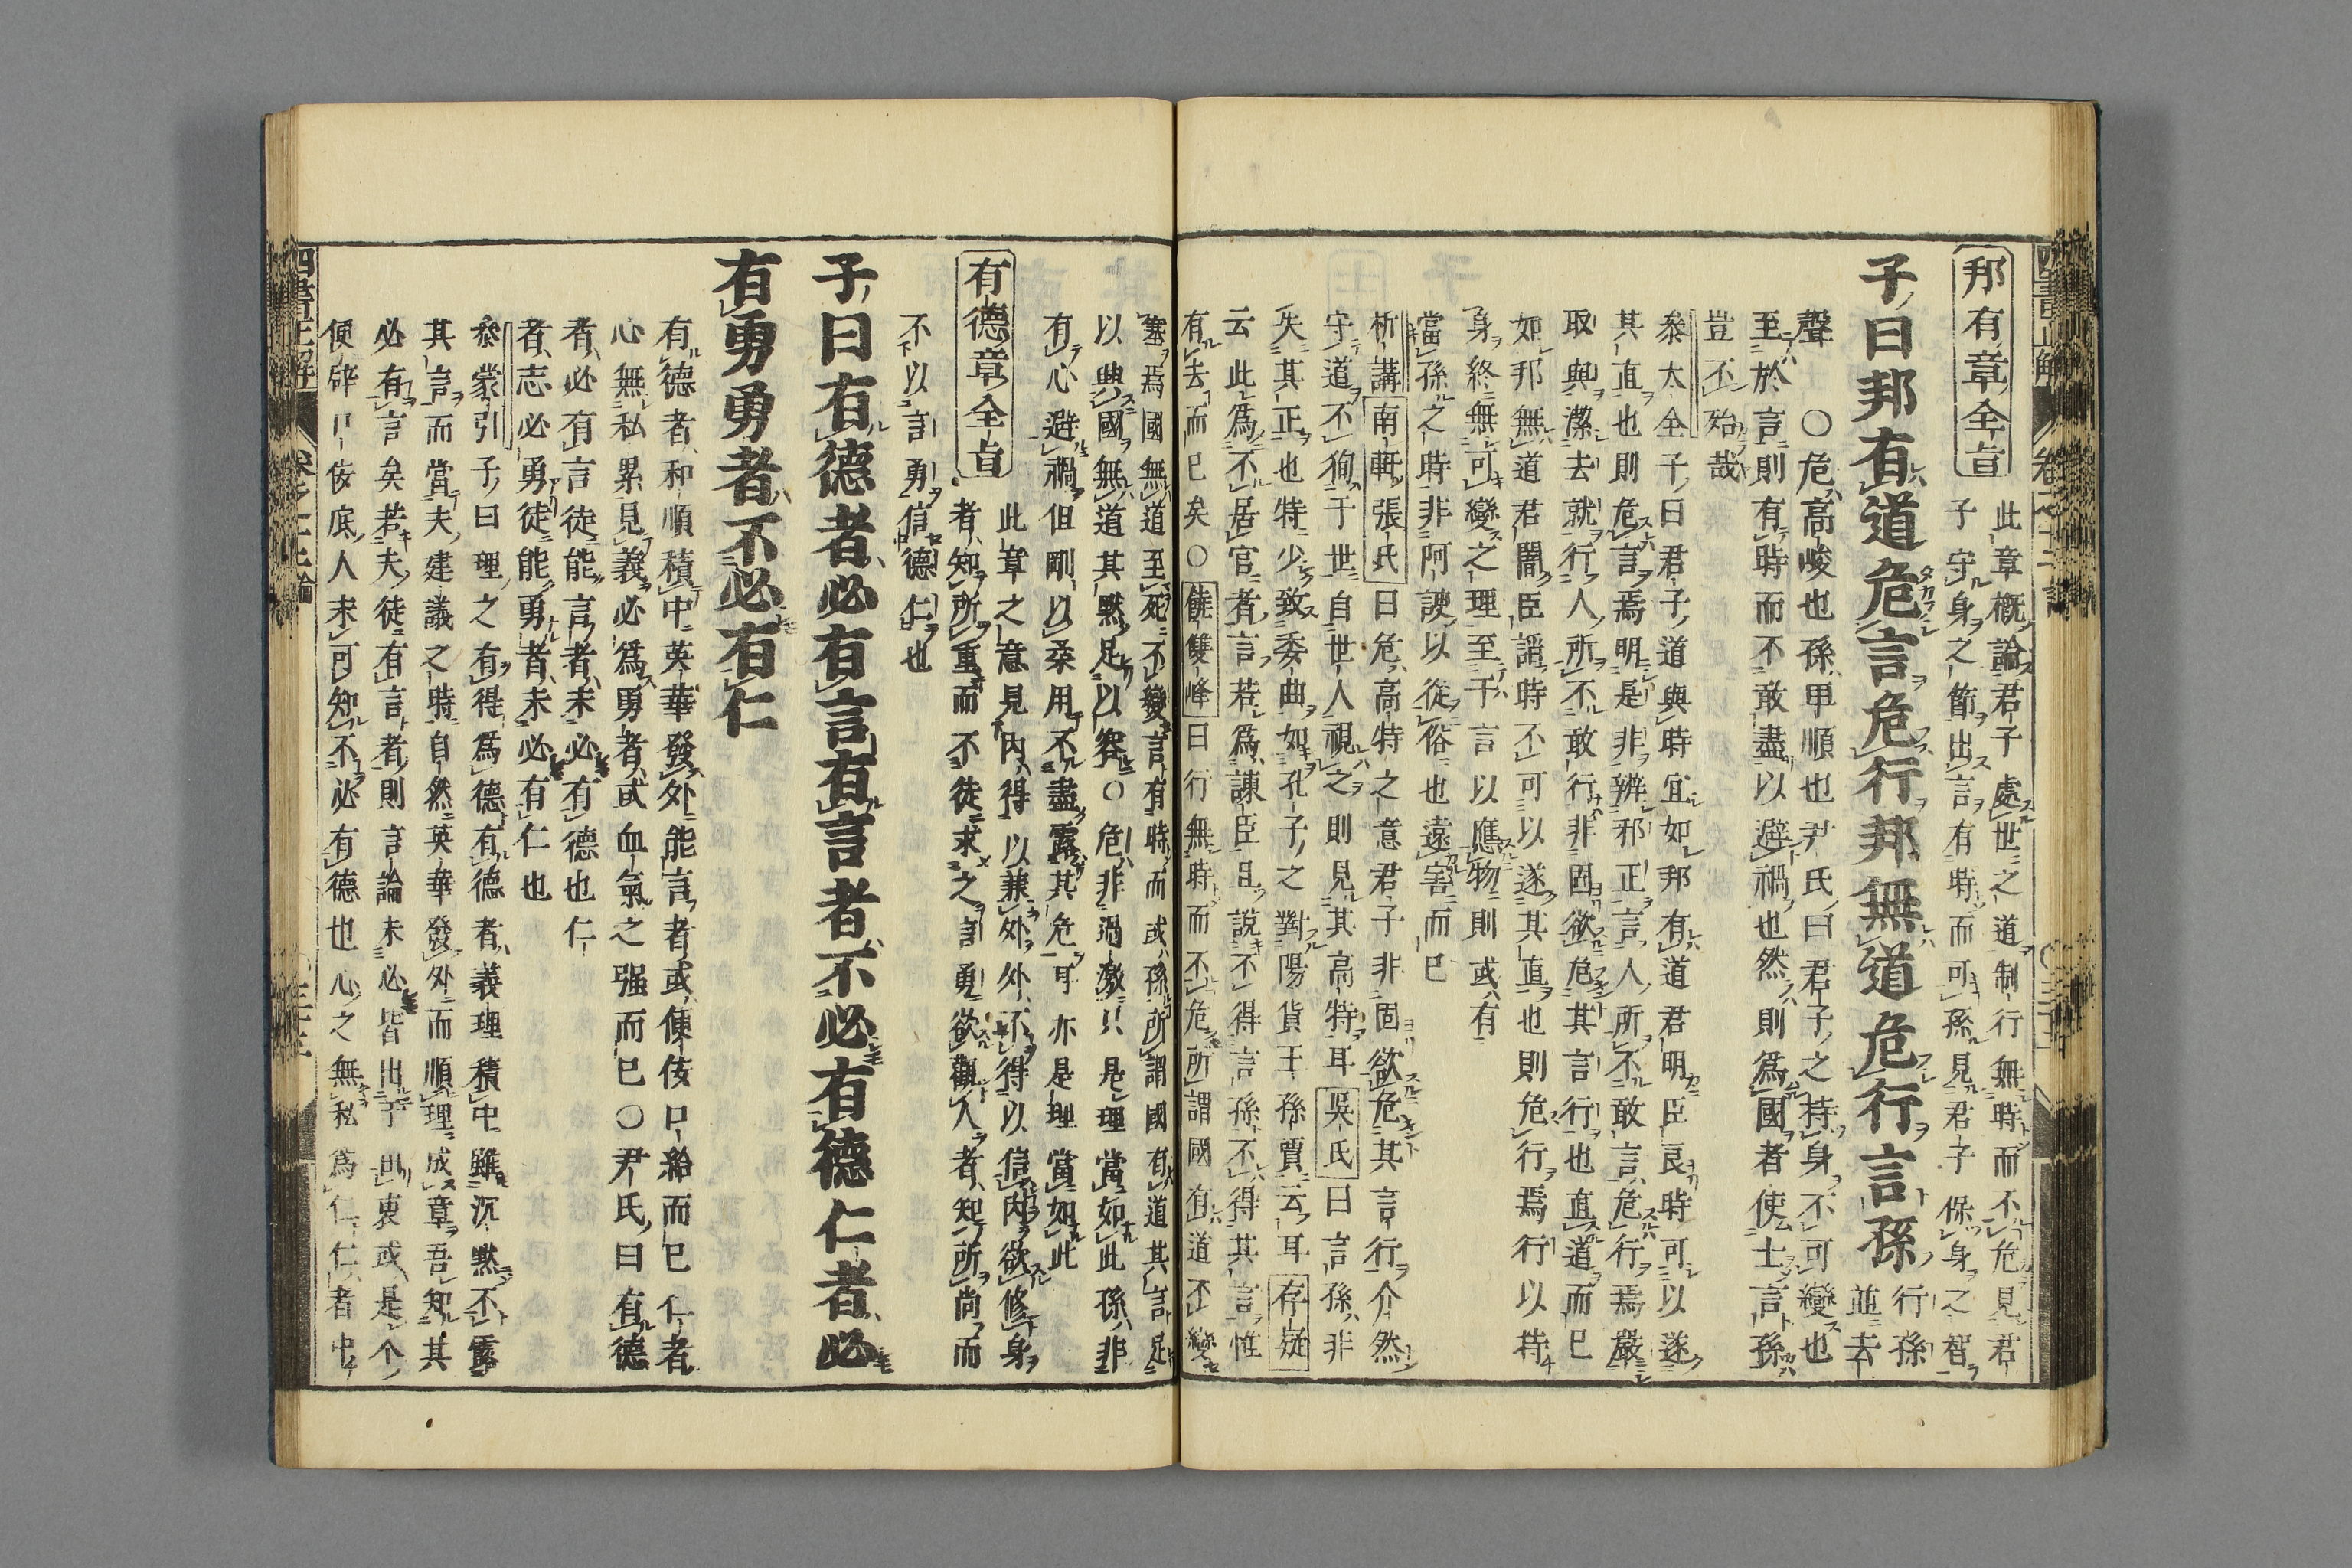 邦有章全旨
此章概論君子處世之道制行無時而不危見君
子守身之節出言有時而可孫見君子保身之智
子曰邦有道危言危行邦無道危行言孫
行孫
並去
聲○危高峻也孫卑順也尹氏曰君子之持身不可變也
至於言則有時而不敢盡以避禍也然則爲國者使士言孫
豈不殆哉
叅大全子曰君子道與時宜如邦有道君明臣良時可以遂
其直也則危言焉明是非辨邪正言人所不敢言危行焉嚴
取與潔去就行人所不敢行非固欲危其言行也直道而已
如邦無道君闇臣謟時不可以遂其直也則危行焉行以持
身終無可變之理至于言以應物則或有
當孫之時非阿諛以從俗也遠害而已
析講南軒張氏曰危高特之意君子非固欲危其言行介然
守道不狥于世自世人視之則見其高特耳吳氏曰言孫非
失其正也特少致委曲如孔子之對陽貨王孫賈云耳存疑
云此爲不居官者言若爲諫臣且說不得言孫不得其言惟
有去而已矣○饒雙峰曰行無時而不危所謂國有道不變
塞焉國無道至死不變言有時而或孫所謂國有道其言足
以興國無道其默足以容○危非過激只是理當如此孫非
有心避禍但剛以柔用不盡露其危耳亦是理當如此
有德章全旨
此章之意見內得以兼外外不得以信內欲修身
者知所重而不徒求之言勇欲觀人者知所尚而
不以言勇信德仁也
子曰有德者必有言有言者不必有德仁者必
有勇勇者不必有仁
有德者和順積中英華發外能言者或便佞口給而已仁者
心無私累見義必爲勇者或血氣之强而已○尹氏曰有德
者必有言徒能言者未必有德也仁
者志必勇徒能勇者未必有仁也
叅蒙引子曰理之有得爲德有德者義理積中雖沉默不露
其言而當夫建議之時自然英華發外而順理成章吾知其
必有言矣若夫徒有言者則言論未必皆出于由衷或是个
便辟口佞底人未可知不必有德也心之無私爲仁仁者中
四書正解